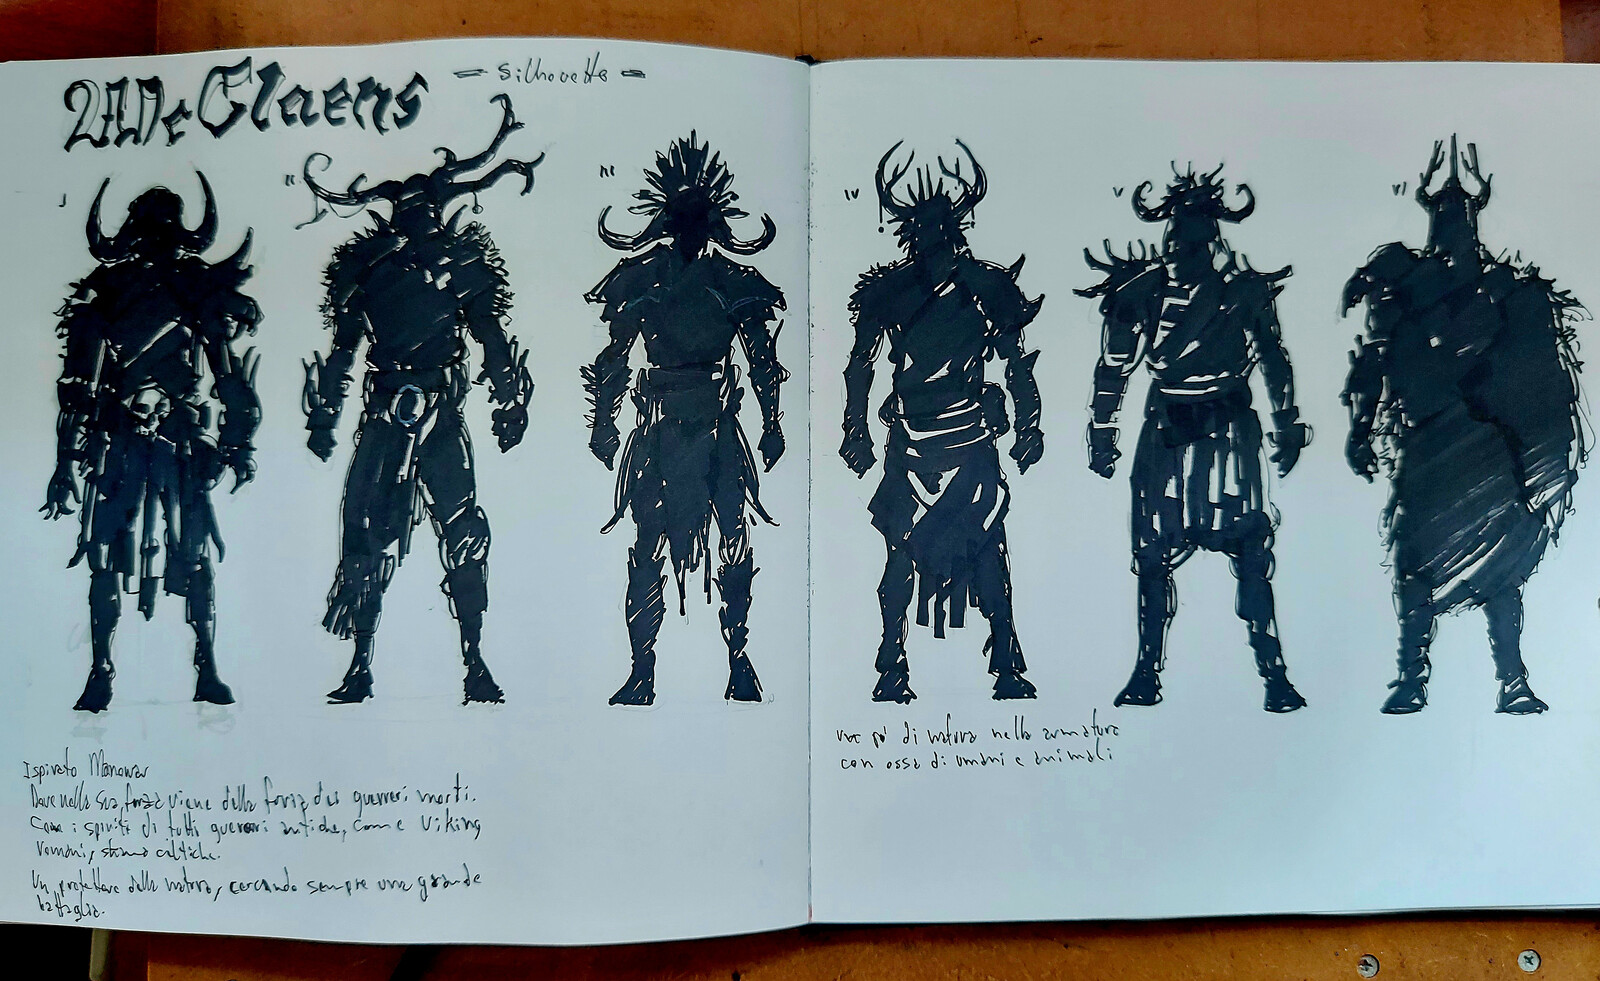 McClaens
= Silhouette =
I
II
III
IV
V
VI
Ispirato Manowar
Dove nella sua forza viene della forza dei guerreri morti.
Con i spiriti di tutti guerreri antichi, come Viking
romani, celtiche.
Un protettore della natura, cercando sempre una grande
battaglia.
un pò di natura nella armatura
con ossa di umani e animali